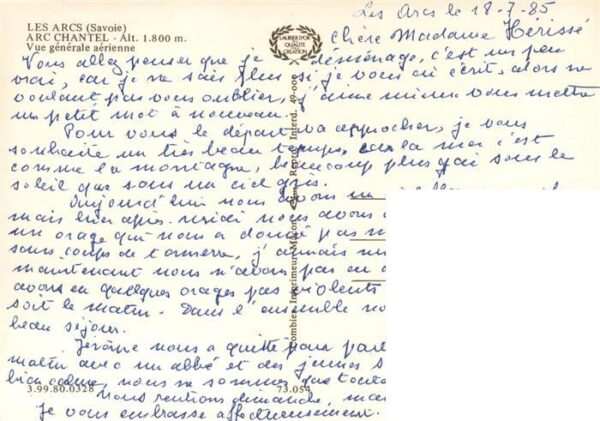 LES ARCS (Savoie)
ARC CHANTEL - Alt. 1.800 m.
Vue générale aérienne
LAURIER D'OR
DE LA
QUALITÉ
CRÉATION
Les Arcs le 18-7-85
Chère Madame Hérissé
Vous allez penser que je déménage, c'est un peu
vrai, car je ne sais plus si je vous ai écrit, alors ne
voulant pas vous oublier, j'aime mieux vous mettre
un petit mot à nouveau.
Pour vous le départ va approcher, je vous
souhaite un très beau temps, car la mer c'est
comme la montagne, beaucoup plus gai sous le
soleil que sous un ciel gris.
Aujourd'hui nous avons un
mais hier après-midi nous avons
un orage qui nous a donné pas
sans coups de tonnerre, j'aimais
maintenant nous n'avons pas eu
avons eu quelques orages pas violents
soit le matin. Dans l'ensemble
beau séjour.
Jérôme nous a quitté pour
matin avec un abbé et des jeunes
bien calme, nous ne sommes que
nous rentrons dimanche,
Je vous embrasse affectueusement.
Combier Imprimeur Mâcon
Reprod. Interd. 49-000
3.99.80.0328
73.054